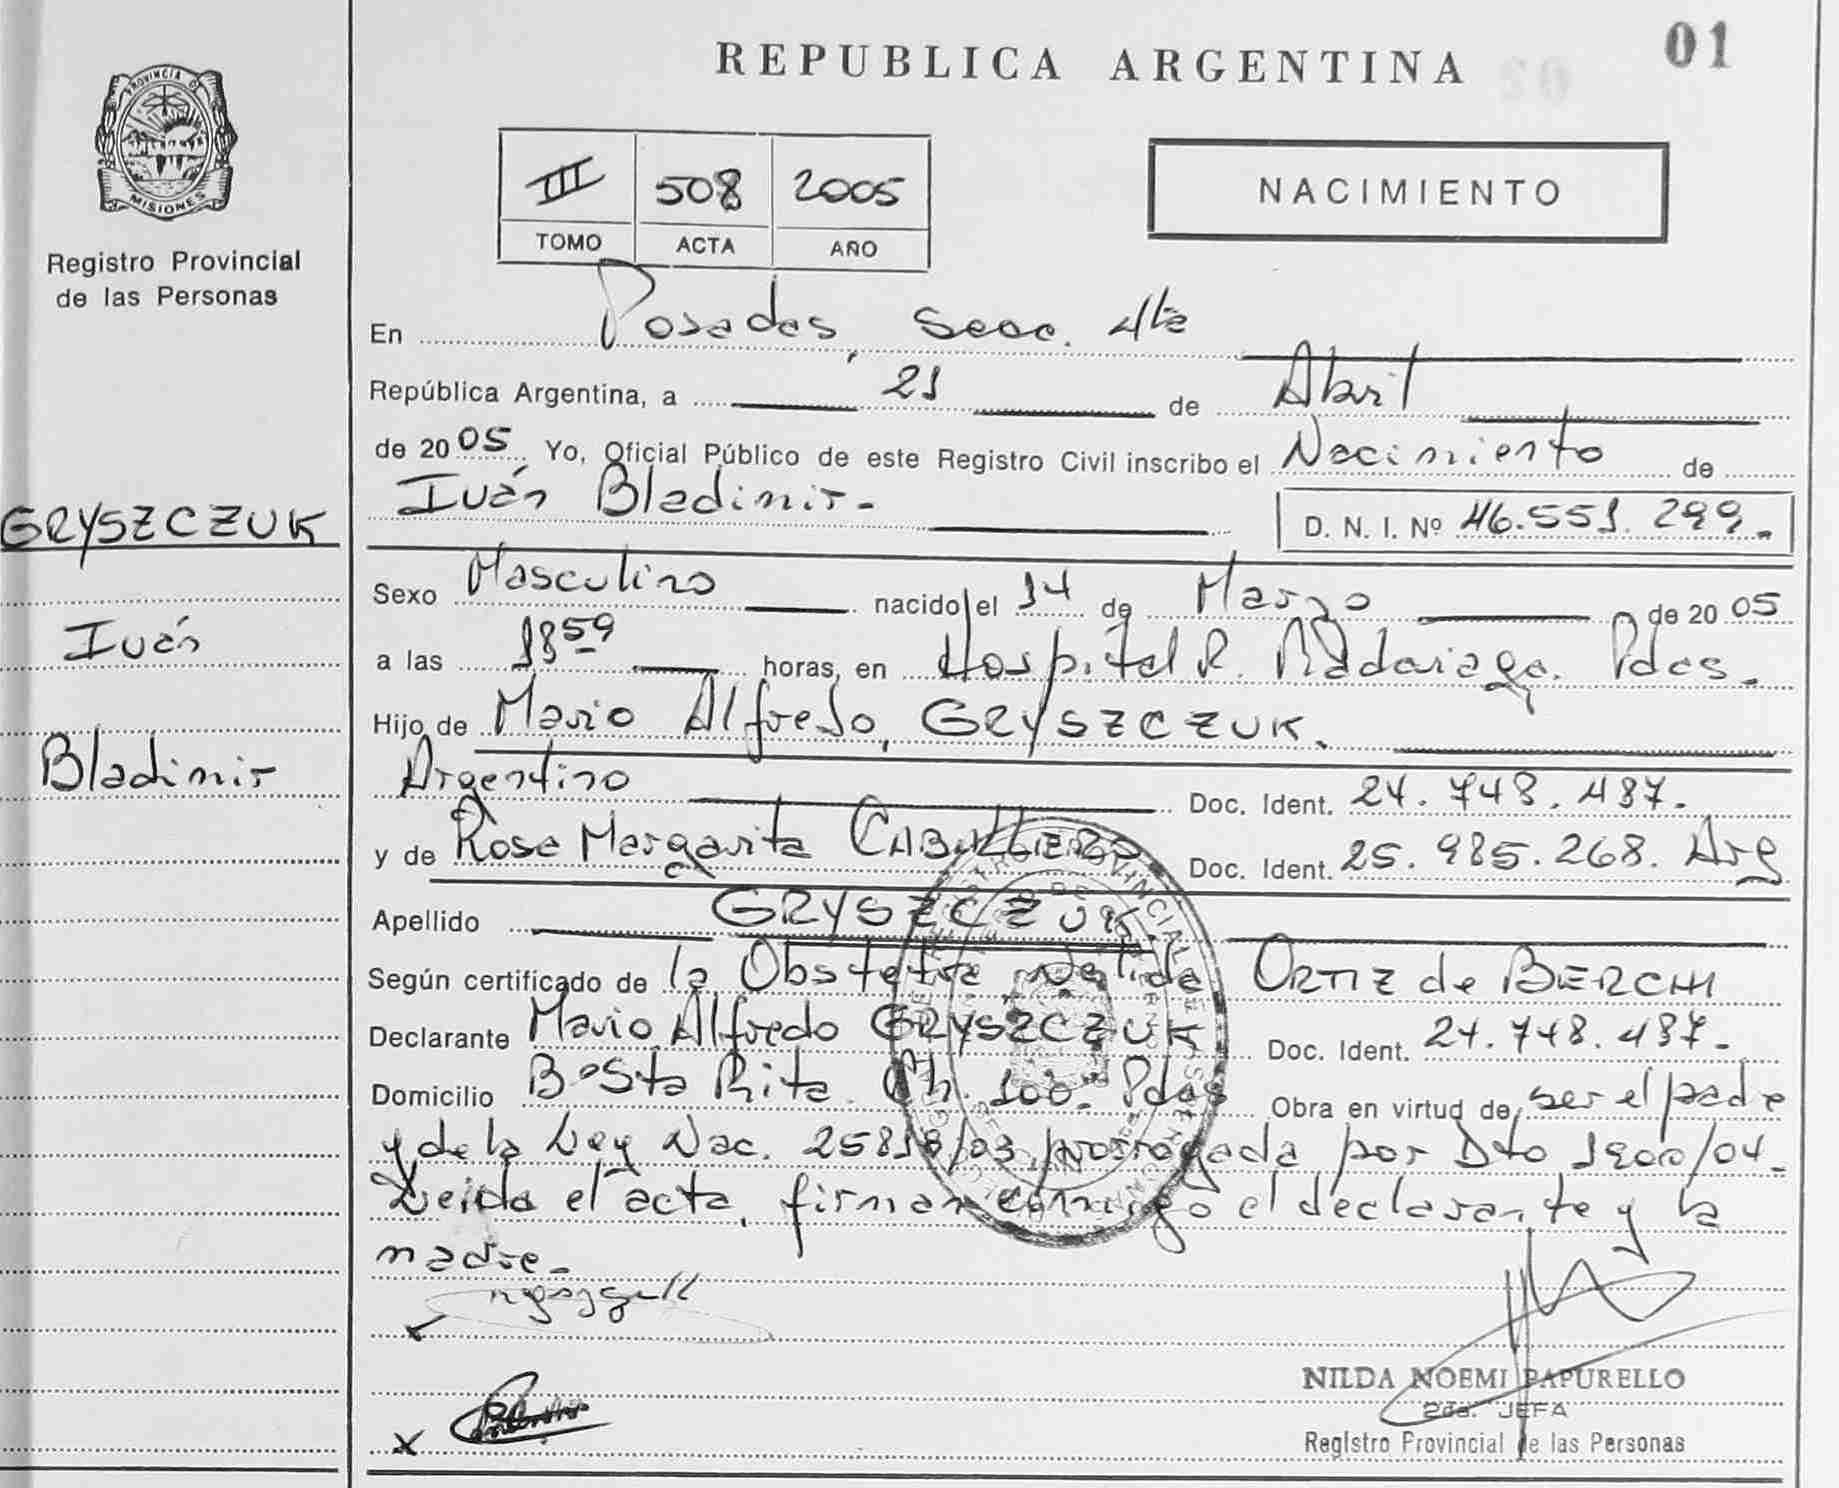 REPUBLICA ARGENTINA
01
PROVINCIA DE
MISIONES
Registro Provincial
de las Personas
III 508 2005
TOMO ACTA AÑO
NACIMIENTO
En Posadas, Secc. 4ta
República Argentina, a 21 de Abril
de 2005, Yo, Oficial Público de este Registro Civil inscribo el Nacimiento de
Iván Bladimir.-
D. N. I. Nº 46.551.299.-
GRYSZCZUK
Iván
Bladimir
Sexo Masculino nacido el 14 de Marzo de 2005
a las 18 59 horas, en Hospital R. Madariaga. Pdas.-
Hijo de Mario Alfredo, GRYSZCZUK.
Argentino Doc. Ident. 24.748.487.-
y de Rosa Margarita CABALLERO Doc. Ident. 25.985.268. Arg
Apellido GRYSZCZUK.
Según certificado de la Obstetra Nelida ORTIZ de BERCHI
Declarante Mario Alfredo GRYSZCZUK Doc. Ident. 24.748.487.-
Domicilio Bº Sta Rita Ch. 100. Pdas Obra en virtud de, ser el padre
y de la Ley Nac. 25818/03, prorrogada por Dto 1900/04.-
Leida el acta, firman conmigo el declarante y la
madre.-
NILDA NOEMI PAPURELLO
2da. JEFA
Registro Provincial de las Personas